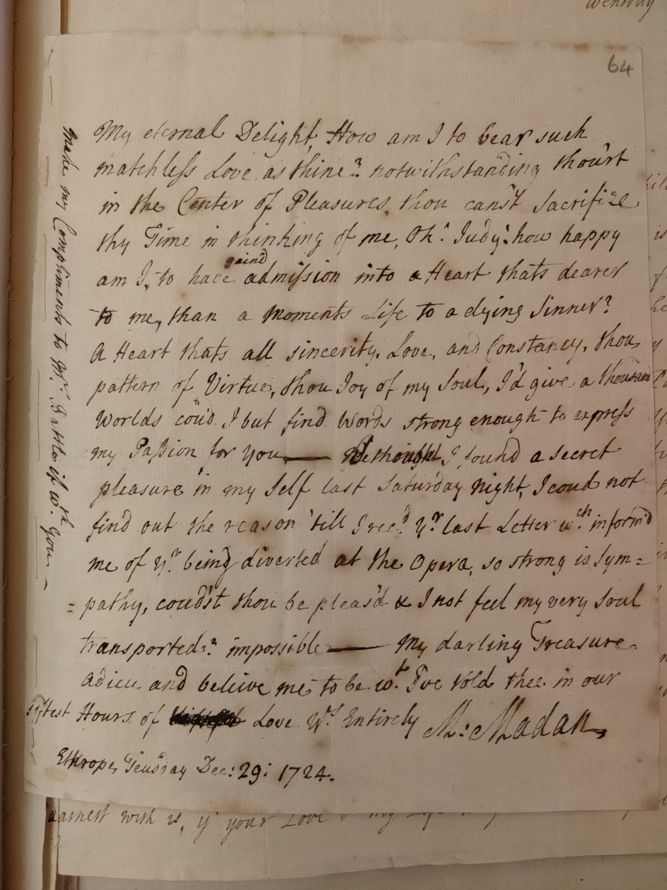 64
My eternal Delight, How am I to bear such
matchless Love as thine? notwithstanding thou'rt
in the Center of Pleasures, thou can'st Sacrifize
thy Time in thinking of me, Oh! Judy! how happy
am I, to have gain'd admission into a Heart thats dearer
to me, than a moments Life to a dying Sinner?
A Heart thats all sincerity, Love, and Constancy, thou
pattern of Virtue, thou Joy of my Soul, I'd give a thousand
Worlds cou'd I but find words strong enough to express
my Passion for you — Methought I found a secret
pleasure in my Self last Saturday night, I coud not
find out the reason 'till I rec.d yr. last Letter wch. inform'd
me of yr. being diverted at the Opera, so strong is Sym=
=pathy, coud'st thou be pleas'd & I not feel my very Soul
transported? impossible — My darling Treasure
adieu and beleive me to be wt. I've told thee in our
softest Hours of Love Yrs. Entirely M: Madan,
Teusday Dec: 29: 1724.
Make my Compliments to Mrs. if wth. You —
earnest wish is, if your Love